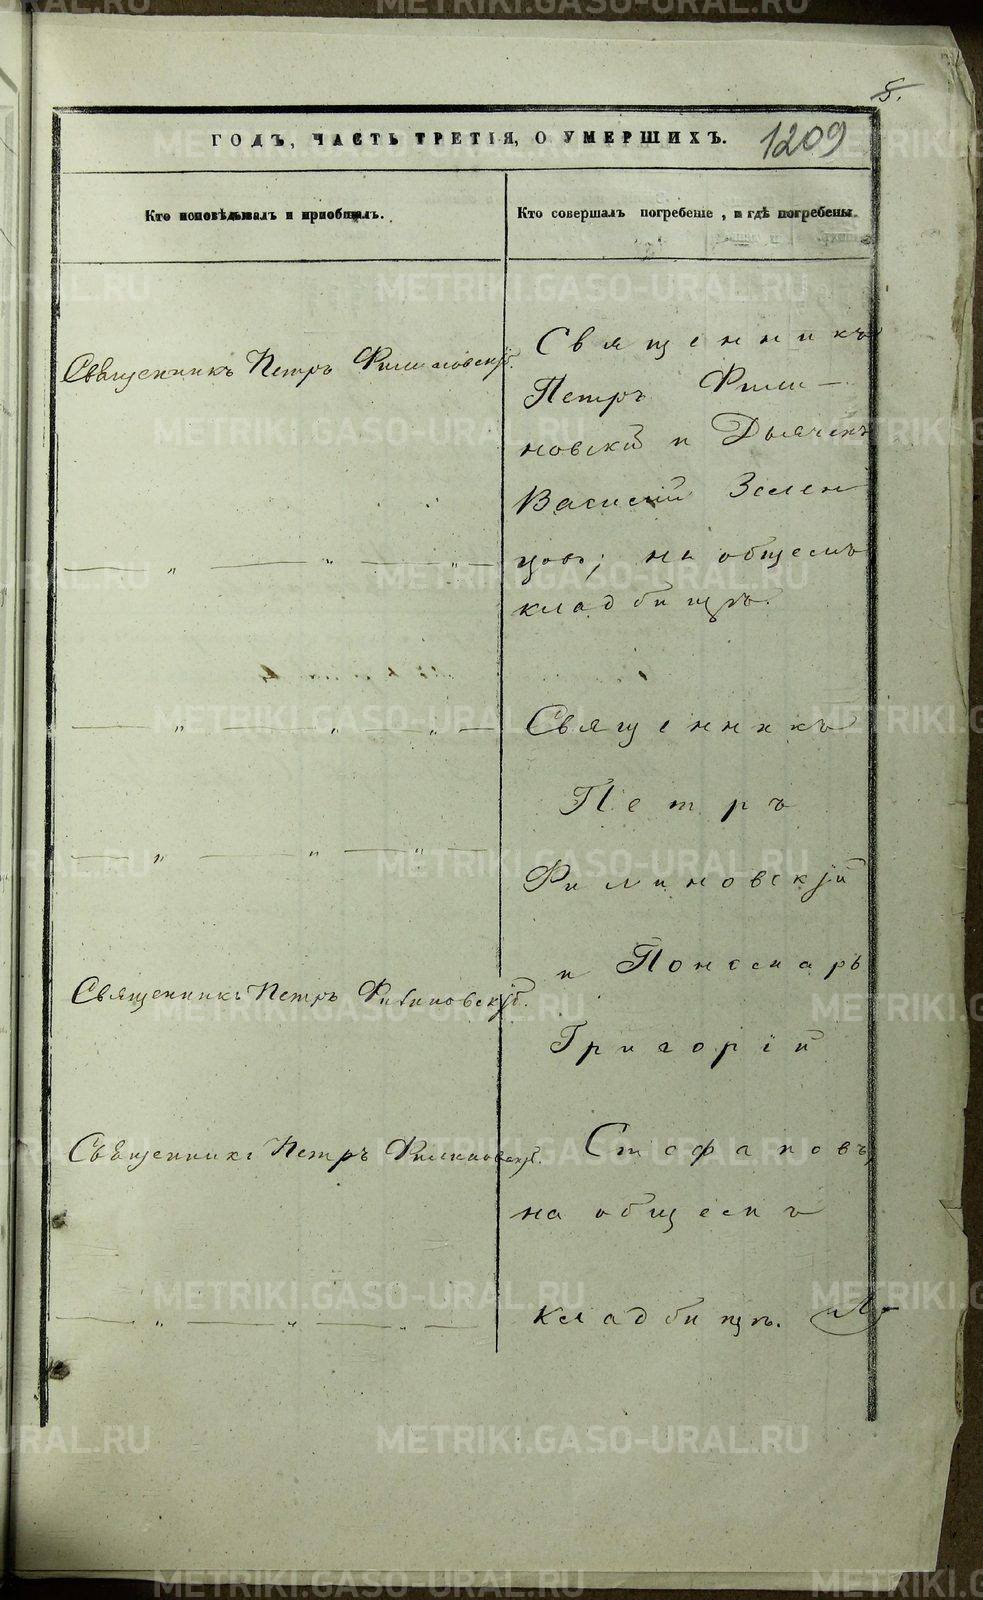 5.
ГОДЪ, ЧАСТЬ ТРЕТІЯ, О УМЕРШИХЪ.
1209
Кто исповѣдывалъ и пріобщалъ.
Кто совершалъ погребеніе, и гдѣ погребены.
Священникъ Петръ Филиновскій.
— „ — „ — „ —
— „ — „ — „ —
— „ — „ — „ —
Священникъ Петръ Филиновскій.
Священникъ Петръ Филиновскій.
— „ — „ — „ —
Священникъ
Петръ Фили-
новскій и Дьячекъ
Василій Зелен
цовъ; на общемъ
кладбищѣ.
Священникъ
Петръ
Филиновскій
и Пономарь
Григорій
Стефановъ,
на общемъ
кладбищѣ.
METRIKI.GASO-URAL.RU